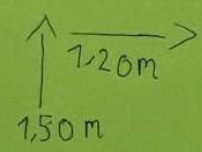 1,20m
1,50 m